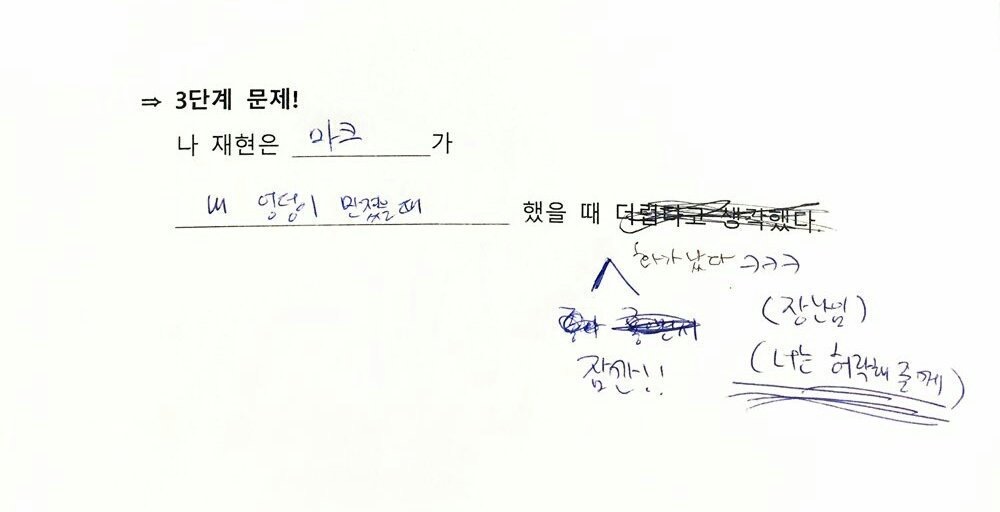 ⇒ 3단계 문제!
나 재현은 마크가
내 엉덩이 만졌을때 했을 때 더럽다고 생각했다.
화가 났다 ㅋㅋㅋ
(장난임)
잠깐!! (너는 허락해 줄게)